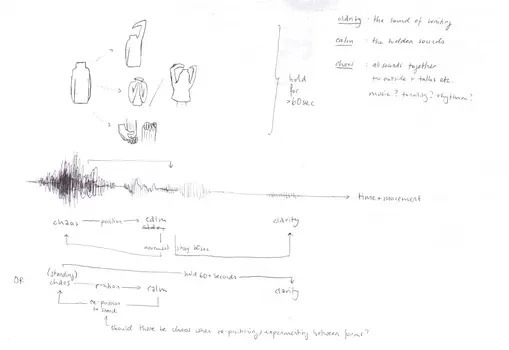 clarity - the sound of
calm - the hidden sounds
chaos : all sounds together
outside + talks etc.
music? tonality? rhythm?
hold
for
>60sec
time + movement
chaos position calm clarity
movement stay 60sec
hold 60+ seconds
OR (standing)
chaos position calm clarity
re-position
should there be chaos when re-positioning + experimenting between forms?